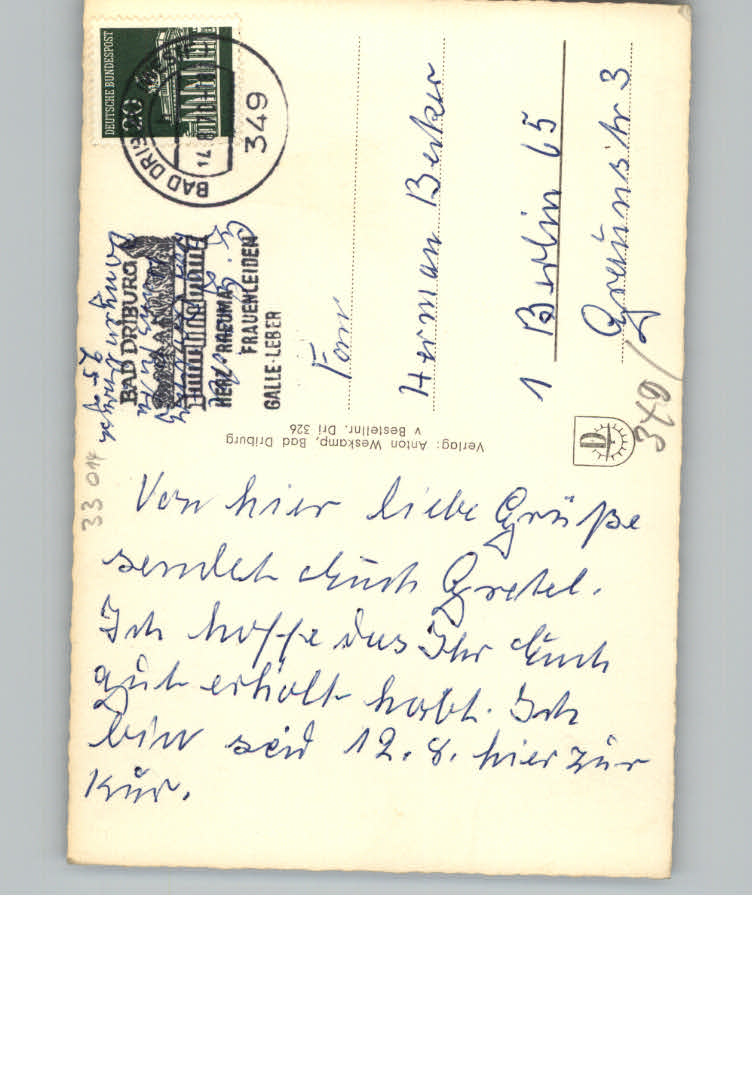 Von hier liebe Grüße
sendet Euch Gretel.
Ich hoffe das Ihr Euch
gut erholt habt. Ich
bin seid 12.8. hier zur
Kur.
Fam
Herman Becker
1 Berlin 65
3
DEUTSCHE BUNDESPOST
20
349
BAD DRIBURG
14. 8.
BAD DRIBURG
HERZ-RHEUMA
FRAUENLEIDEN
GALLE-LEBER
Verlag: Anton Weskamp, Bad Driburg
v Bestellnr. Dri 326
D
349/
33 014